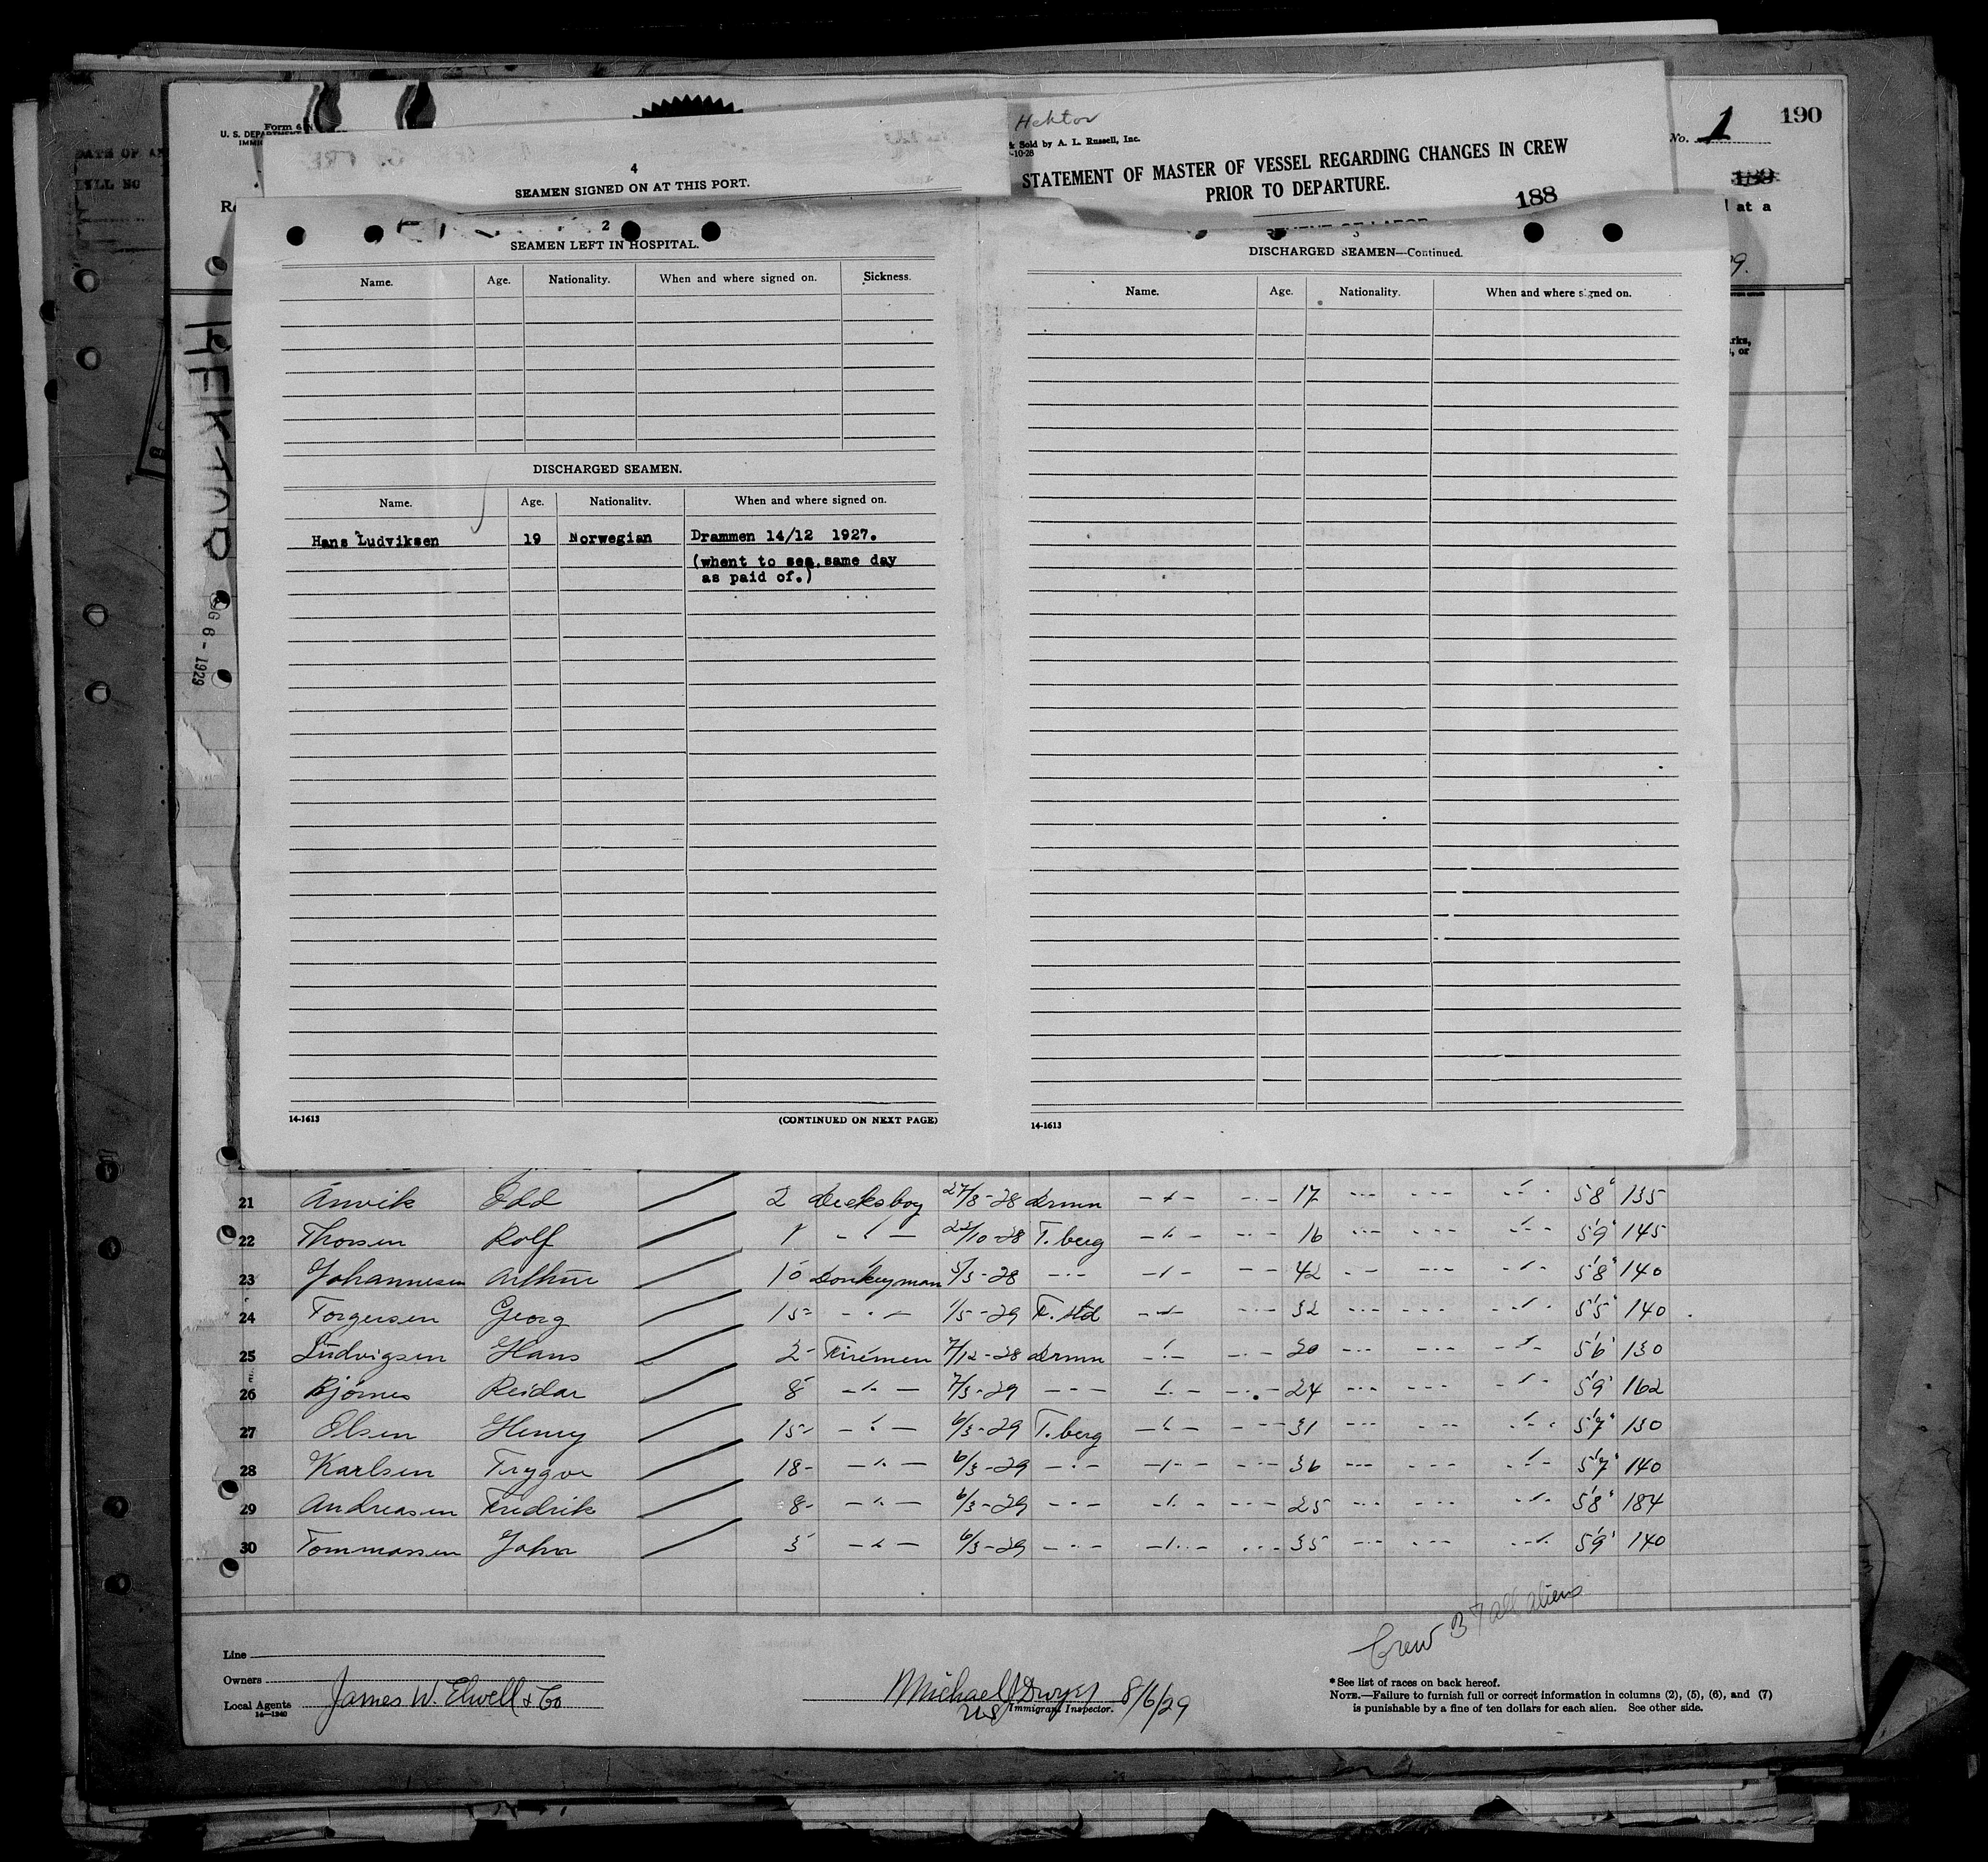 190
No. 1
Hektor
Form 6
U. S. DEPA
IMMI
Sold by A. L. Russell, Inc.
-10-28
STATEMENT OF MASTER OF VESSEL REGARDING CHANGES IN CREW
PRIOR TO DEPARTURE.
188
4
SEAMEN SIGNED ON AT THIS PORT.
at a
9.
rks,
, or
DATE OF
HEKTOR
G 6 - 1929
2
SEAMEN LEFT IN HOSPITAL.
Name. Age. Nationality. When and where signed on. Sickness.
DISCHARGED SEAMEN.
Name. Age. Nationality. When and where signed on.
Hans Ludviksen 19 Norwegian Drammen 14/12 1927.
(whent to sea, same day
as paid of.)
14-1613 (CONTINUED ON NEXT PAGE)
3
DISCHARGED SEAMEN—Continued.
Name. Age. Nationality. When and where signed on.
14-1613
21 Anvik Odd 2 Decksboy 27/8-28 Drmn 17 5'8" 135
22 Thorsen Rolf 1 /10-28 T.berg 16 5'9" 145
23 Johannesen Arthur 10 Donkeyman 5/3-28 42 5'8" 140
24 Torgersen Georg 15 1/5-29 F.stad 32 5'5" 140
25 Ludvigsen Hans 2 Firemen 7/12-28 Drmn 20 5'6" 130
26 Bjørnes Reidar 8 7/3-29 24 5'9" 162
27 Olsen Henry 15 6/3-29 T.berg 31 5'7" 130
28 Karlsen Trygve 18 6/3-29 36 5'7" 140
29 Andreasen Fredrik 8 6/3-29 25 5'8" 184
30 Tommassen John 3 6/3-29 35 5'9" 140
Crew 37 all aliens
Line
Owners
Local Agents James W. Elwell & Co
14—1240
Michael J Dwyer 8/6/29
US Immigrant Inspector.
*See list of races on back hereof.
NOTE.—Failure to furnish full or correct information in columns (2), (5), (6), and (7)
is punishable by a fine of ten dollars for each alien. See other side.